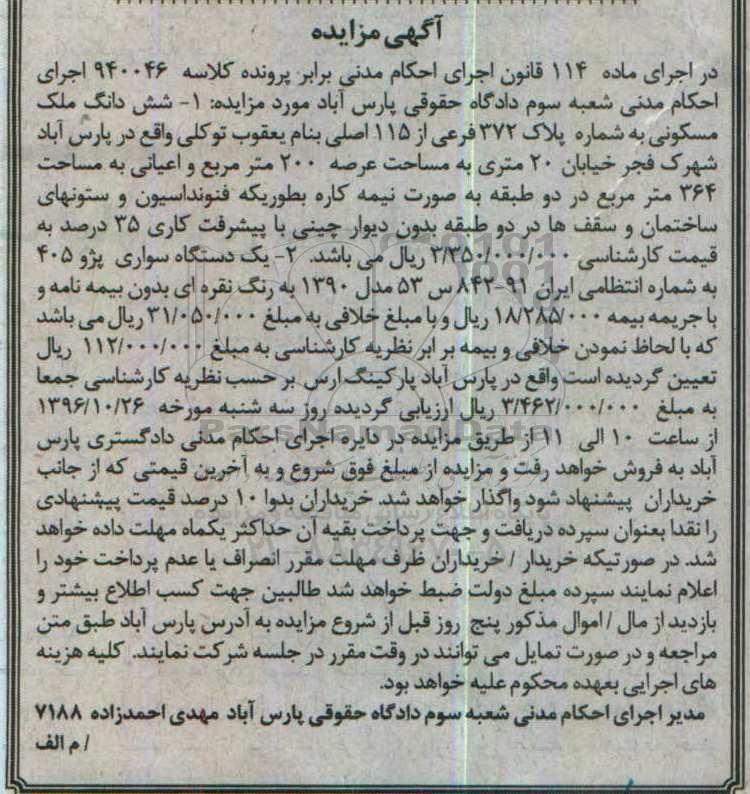 آگهی مزایده
در اجرای ماده ۱۱۴ قانون اجرای احکام مدنی برابر پرونده کلاسه ۹۴۰۰۴۶ اجرای
احکام مدنی شعبه سوم دادگاه حقوقی پارس آباد مورد مزایده: ۱- شش دانگ ملک
مسکونی به شماره پلاک ۳۷۲ فرعی از ۱۱۵ اصلی بنام یعقوب توکلی واقع در پارس آباد
شهرک فجر خیابان ۲۰ متری به مساحت عرصه ۲۰۰ متر مربع و اعیانی به مساحت
۳۶۴ متر مربع در دو طبقه به صورت نیمه کاره بطوریکه فنونداسیون و ستونهای
ساختمان و سقف ها در دو طبقه بدون دیوار چینی با پیشرفت کاری ۳۵ درصد به
قیمت کارشناسی ۳/۳۵۰/۰۰۰/۰۰۰ ریال می باشد. ۲- یک دستگاه سواری پژو ۴۰۵
به شماره انتظامی ایران ۹۱-۸۴۲ س ۵۳ مدل ۱۳۹۰ به رنگ نقره ای بدون بیمه نامه و
با جریمه بیمه ۱۸/۲۸۵/۰۰۰ ریال و با مبلغ خلافی به مبلغ ۳۱/۰۵۰/۰۰۰ ریال می باشد
که با لحاظ نمودن خلافی و بیمه بر ابر نظریه کارشناسی به مبلغ ۱۱۲/۰۰۰/۰۰۰ ریال
تعیین گردیده است واقع در پارس آباد پارکینگ ارس بر حسب نظریه کارشناسی جمعا
به مبلغ ۳/۴۶۲/۰۰۰/۰۰۰ ریال ارزیابی گردیده روز سه شنبه مورخه ۱۳۹۶/۱۰/۲۶
از ساعت ۱۰ الی ۱۱ از طریق مزایده در دایره اجرای احکام مدنی دادگستری پارس
آباد به فروش خواهد رفت و مزایده از مبلغ فوق شروع و به آخرین قیمتی که از جانب
خریداران پیشنهاد شود واگذار خواهد شد. خریداران بدوا ۱۰ درصد قیمت پیشنهادی
را نقدا بعنوان سپرده دریافت و جهت پرداخت بقیه آن حداکثر یکماه مهلت داده خواهد
شد. در صورتیکه خریدار / خریداران ظرف مهلت مقرر انصراف یا عدم پرداخت خود را
اعلام نمایند سپرده مبلغ دولت ضبط خواهد شد طالبین جهت کسب اطلاع بیشتر و
بازدید از مال / اموال مذکور پنج روز قبل از شروع مزایده به آدرس پارس آباد طبق متن
مراجعه و در صورت تمایل می توانند در وقت مقرر در جلسه شرکت نمایند. کلیه هزینه
های اجرایی بعهده محکوم علیه خواهد بود.
مدیر اجرای احکام مدنی شعبه سوم دادگاه حقوقی پارس آباد مهدی احمدزاده ۷۱۸۸
/ م الف
ParsNamadData